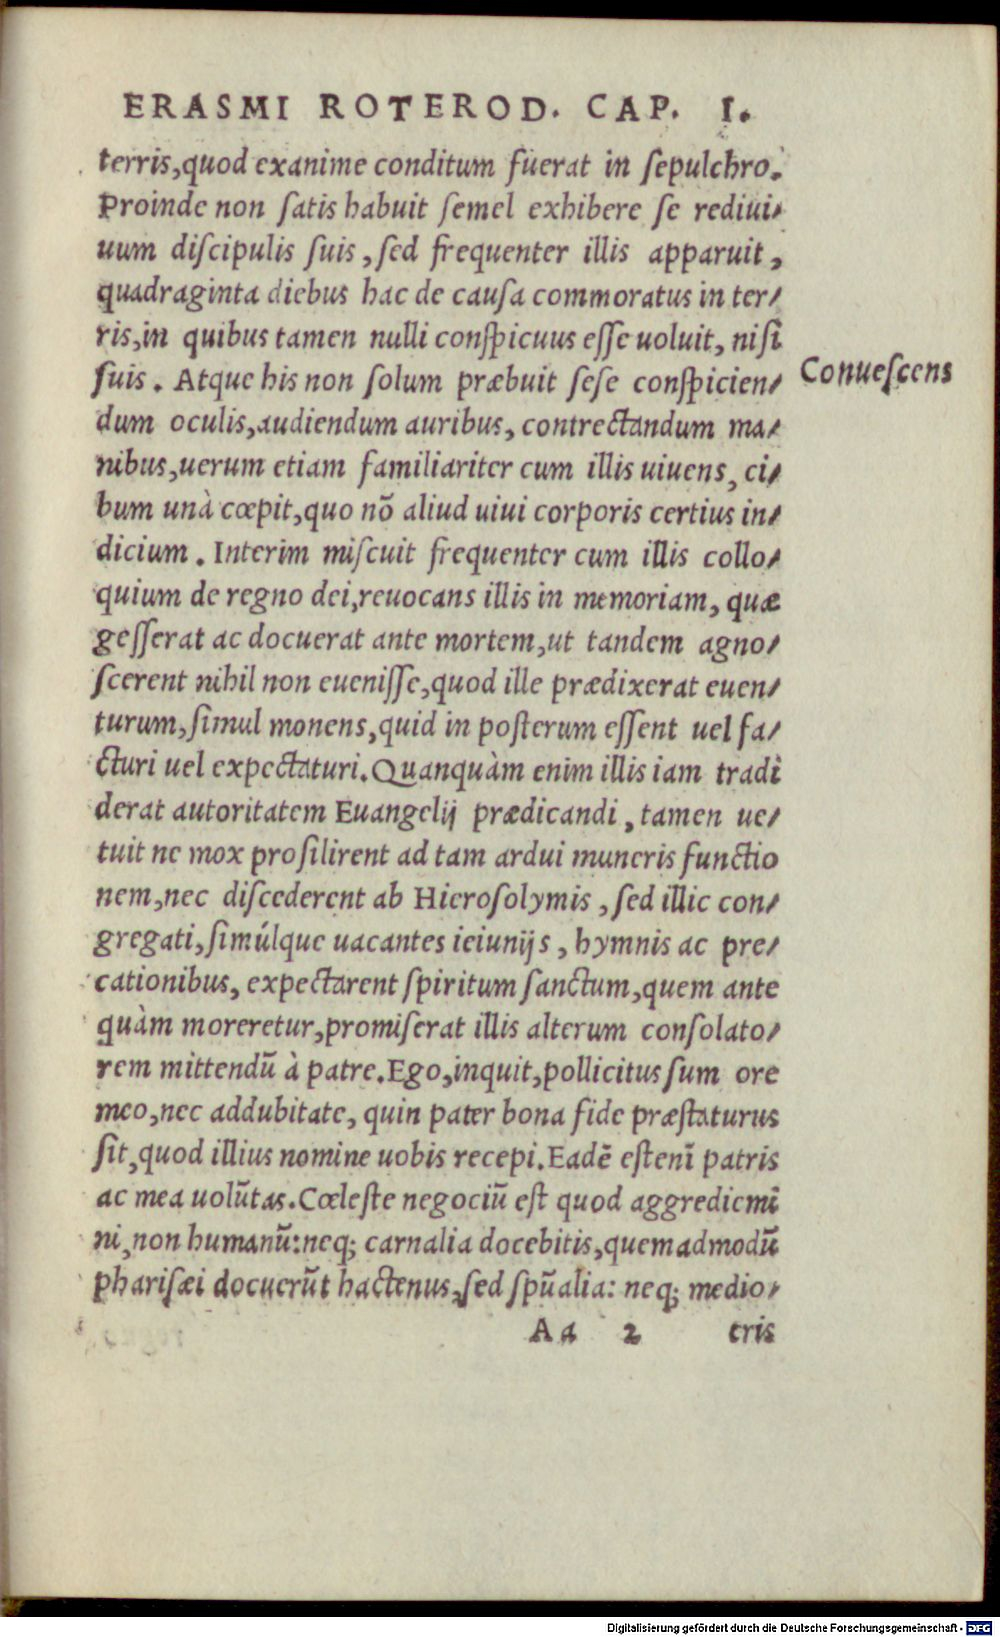 ERASMI ROTEROD. CAP. I.
terris, quod exanime conditum fuerat in sepulchro.
Proinde non satis habuit semel exhibere se rediui-
uum discipulis suis, sed frequenter illis apparuit,
quadraginta diebus hac de causa commoratus in ter-
ris, in quibus tamen nulli conspicuus esse uoluit, nisi
suis. Atque his non solum præbuit sese conspicien-
Conuescens
dum oculis, audiendum auribus, contrectandum ma-
nibus, uerum etiam familiariter cum illis uiuens, ci-
bum unà cœpit, quo nõ aliud uiui corporis certius in-
dicium. Interim miscuit frequenter cum illis collo-
quium de regno dei, reuocans illis in memoriam, quæ
gesserat ac docuerat ante mortem, ut tandem agno-
scerent nihil non euenisse, quod ille prædixerat euen-
turum, simul monens, quid in posterum essent uel fa-
cturi uel expectaturi. Quanquàm enim illis iam tradi
derat autoritatem Euangelij prædicandi, tamen ue-
tuit ne mox prosilirent ad tam ardui muneris functio
nem, nec discederent ab Hierosolymis, sed illic con-
gregati, simúlque uacantes ieiunijs, hymnis ac pre-
cationibus, expectarent spiritum sanctum, quem ante
quàm moreretur, promiserat illis alterum consolato-
rem mittendũ à patre. Ego, inquit, pollicitus sum ore
meo, nec addubitate, quin pater bona fide præstaturus
sit, quod illius nomine uobis recepi. Eadẽ est enĩ patris
ac mea uolũtas. Cœleste negociũ est quod aggredicmĩ
ni, non humanũ: neq; carnalia docebitis, quemadmodũ
pharisæi docuerũt hactenus, sed spũalia: neq; medio-
Aa 2 cris
Digitalisierung gefördert durch die Deutsche Forschungsgemeinschaft - DFG